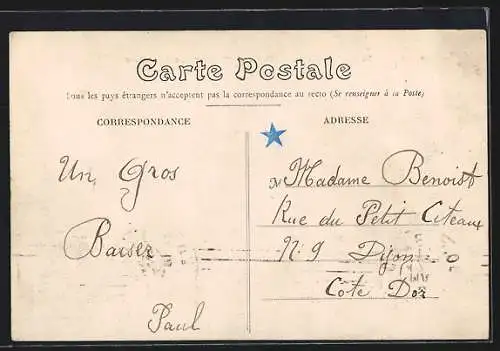 Carte Postale
Tous les pays étrangers n'acceptent pas la correspondance au recto (Se renseigner à la Poste)
CORRESPONDANCE
Un Gros
Baiser
Paul
ADRESSE
Madame Benoist
Rue du Petit Citeaux
N. 9 Dijon
Côte Dor